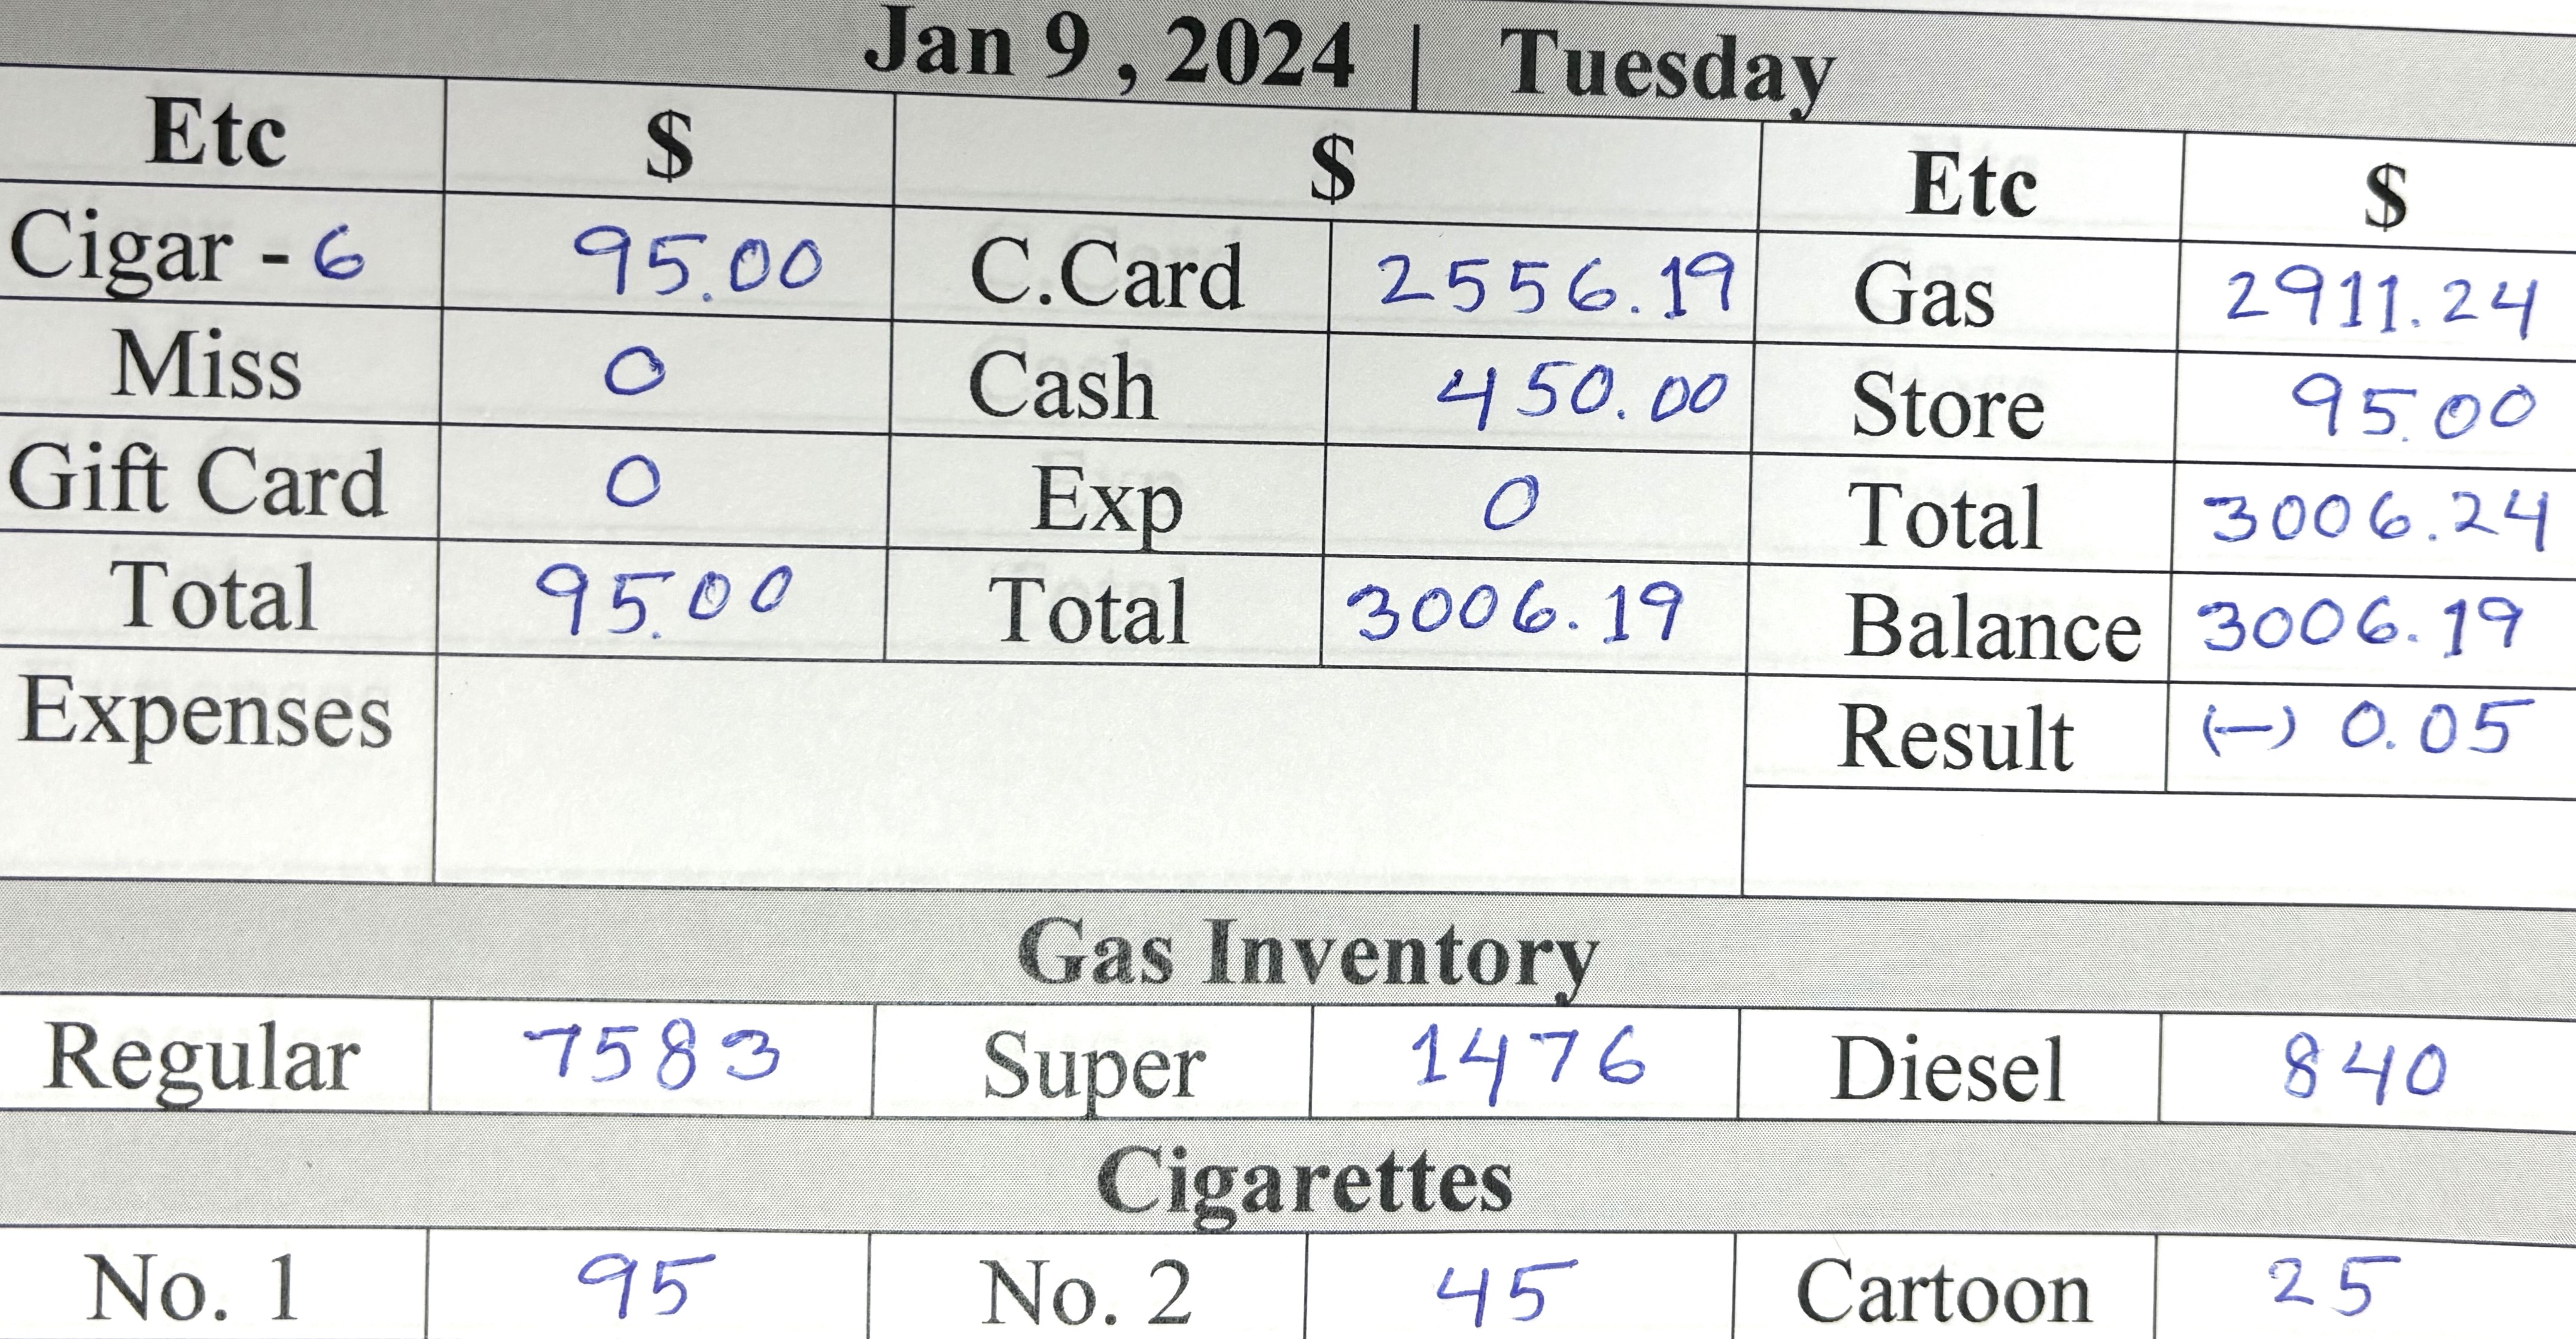 Jan 9 , 2024 | Tuesday
Etc $ $ Etc $
Cigar - 6 95.00 C.Card 2556.19 Gas 2911.24
Miss 0 Cash 450.00 Store 95.00
Gift Card 0 Exp 0 Total 3006.24
Total 95.00 Total 3006.19 Balance 3006.19
Expenses Result (-) 0.05
Gas Inventory
Regular 7583 Super 1476 Diesel 840
Cigarettes
No. 1 95 No. 2 45 Cartoon 25